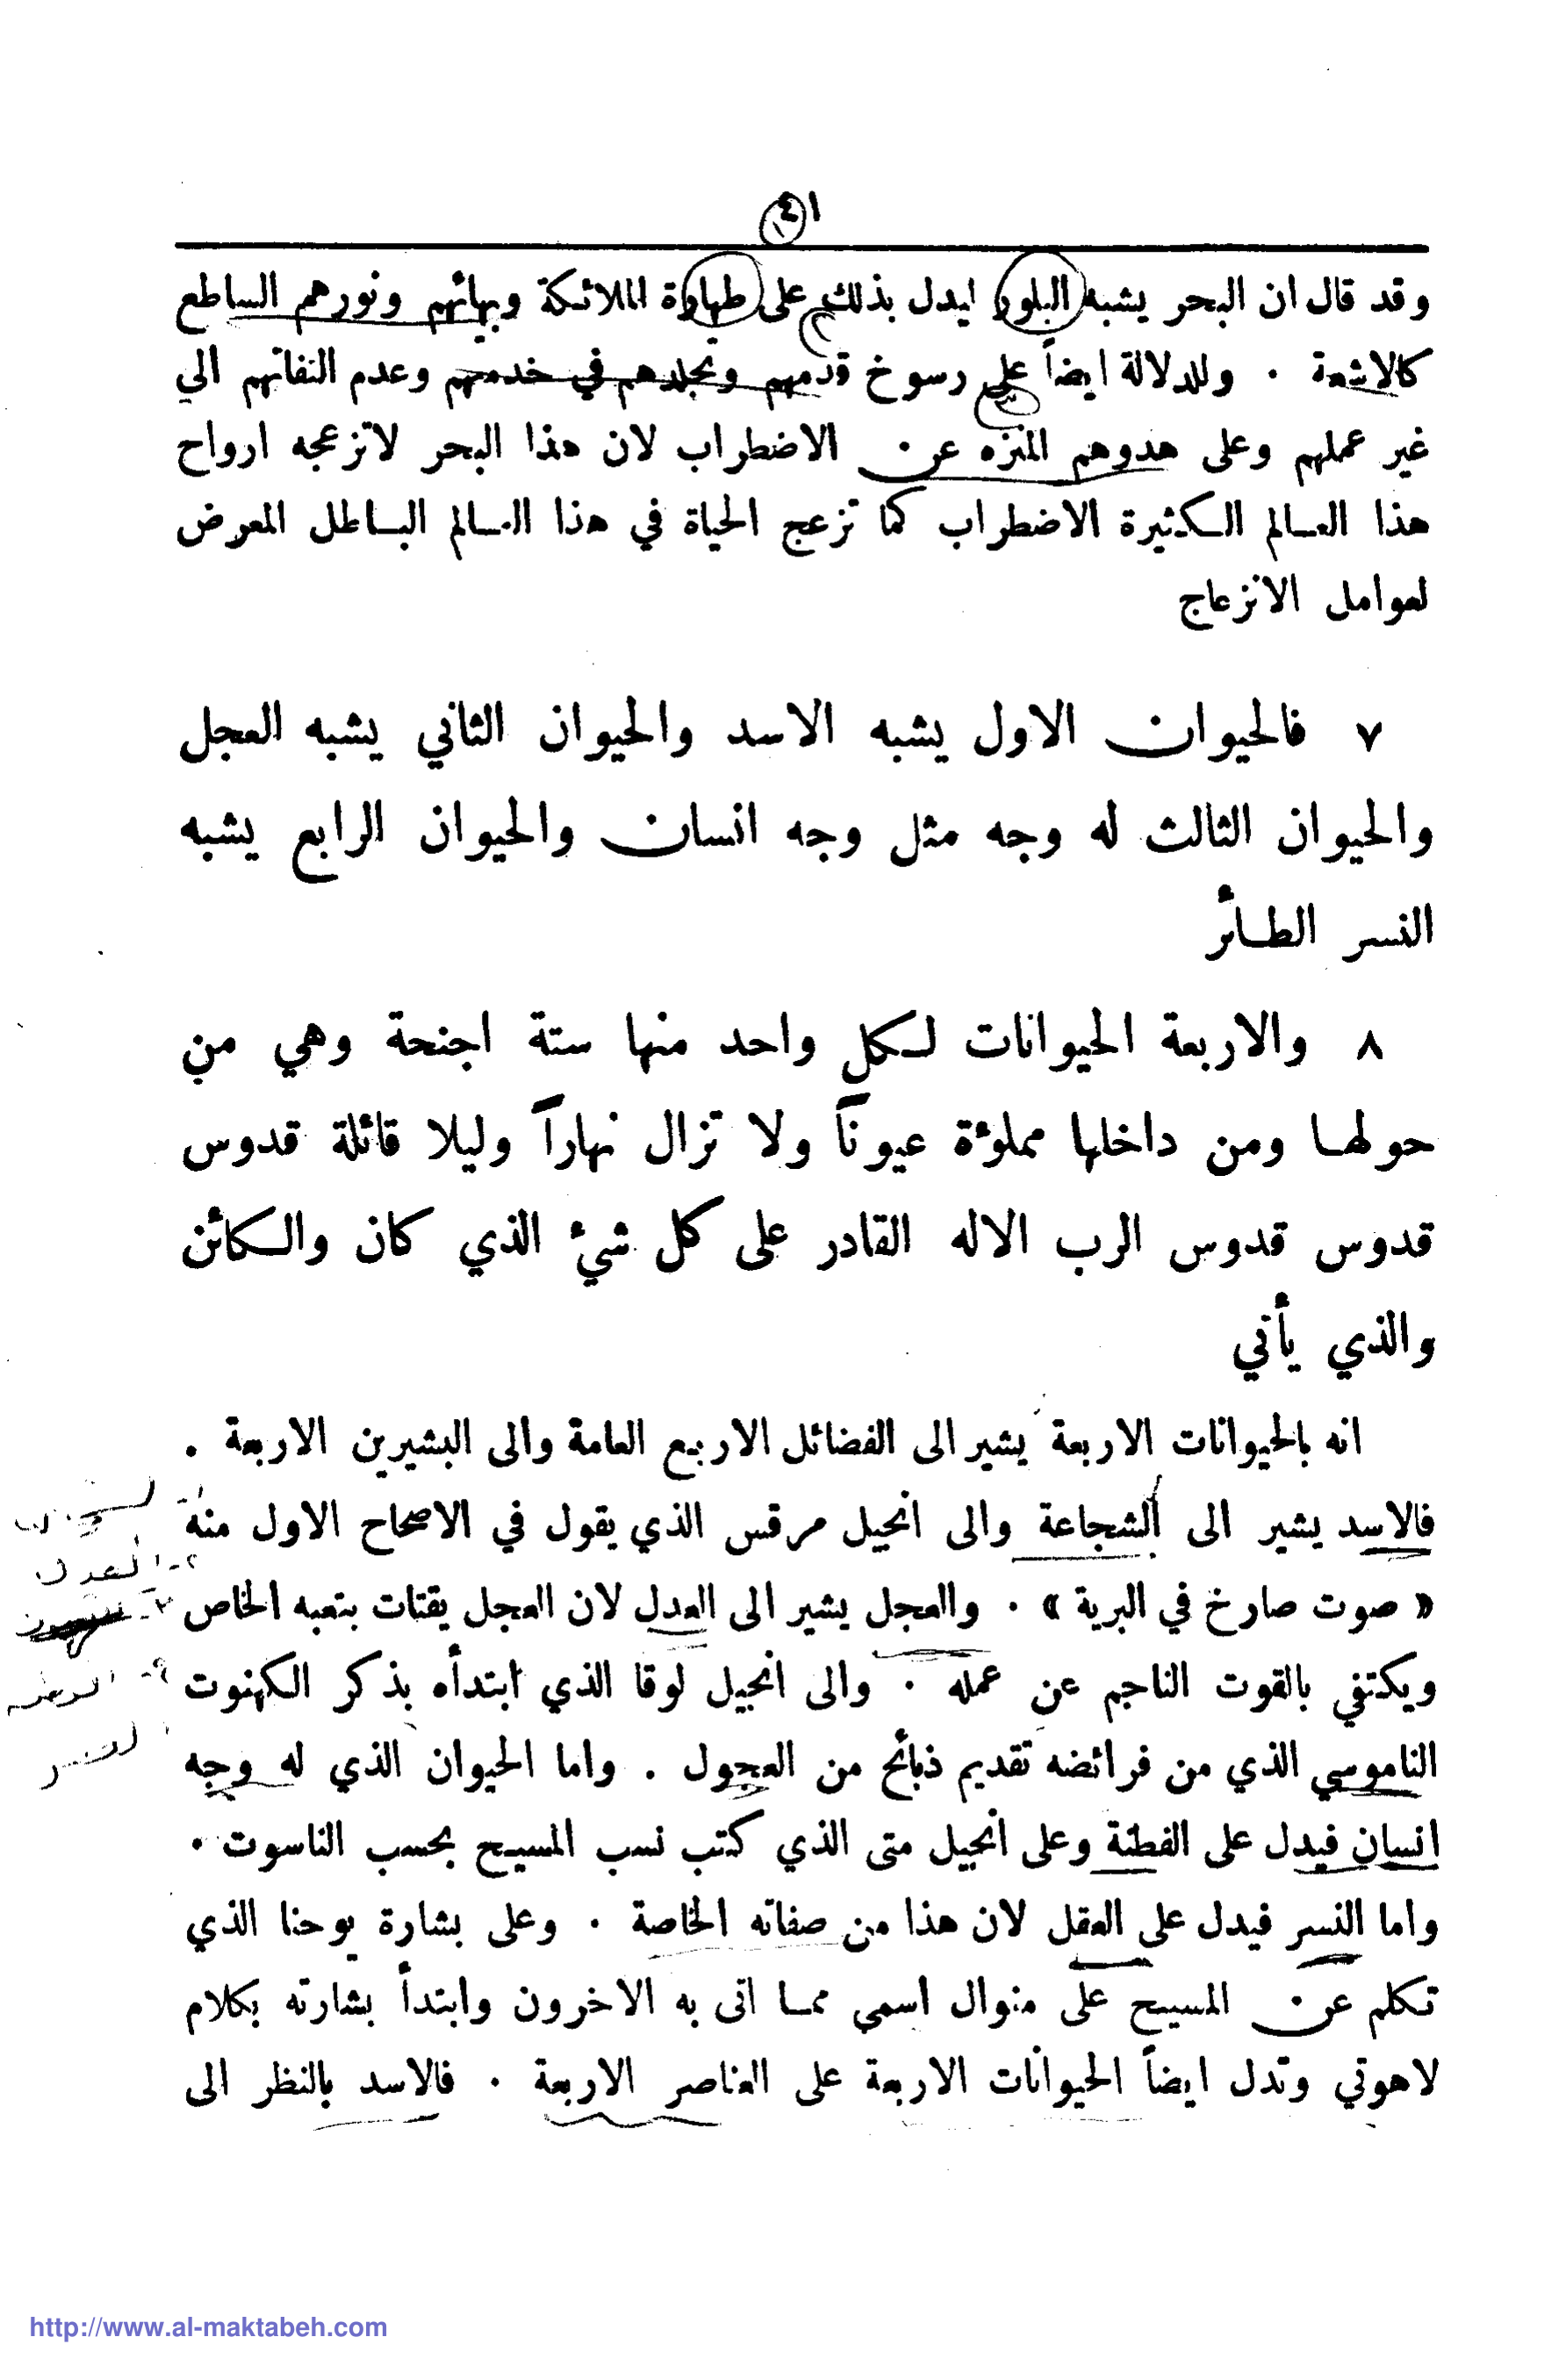 ٤١
وقد قال ان البحر يشبه البلور ليدل بذلك على طهارة الملائكة وبهائهم ونورهم الساطع
كالاشعة . وللدلالة ايضاً على رسوخ قدمهم وتجلدهم في خدمتهم وعدم التفاتهم الى
غير عملهم وعلى هدوهم المنزه عن الاضطراب لان هذا البحر لاتزعجه ارواح
هذا العالم الكثيرة الاضطراب كما تزعج الحياة في هذا العالم الباطل المعرض
لعوامل الانزعاج
٧ فالحيوان الاول يشبه الاسد والحيوان الثاني يشبه العجل
والحيوان الثالث له وجه مثل وجه انسان والحيوان الرابع يشبه
النسر الطائر
٨ والاربعة الحيوانات لكل واحد منها ستة اجنحة وهي من
حولها ومن داخلها مملوءة عيوناً ولا تزال نهاراً وليلا قائلة قدوس
قدوس قدوس الرب الاله القادر على كل شيء الذي كان والكائن
والذي يأتي
انه بالحيوانات الاربعة يشير الى الفضائل الاربع العامة والى البشيرين الاربعة .
فالاسد يشير الى الشجاعة والى انجيل مرقس الذي يقول في الاصحاح الاول منه
« صوت صارخ في البرية » . والعجل يشير الى العدل لان العجل يقتات بتعبه الخاص
ويكتفي بالقوت الناجم عن عمله . والى انجيل لوقا الذي ابتدأه بذكر الكهنوت
الناموسي الذي من فرائضه تقديم ذبائح من العجول . واما الحيوان الذي له وجه
انسان فيدل على الفطنة وعلى انجيل متى الذي كتب نسب المسيح بحسب الناسوت .
واما النسر فيدل على العقل لان هذا من صفاته الخاصة . وعلى بشارة يوحنا الذي
تكلم عن المسيح على منوال اسمى مما اتى به الاخرون وابتدأ بشارته بكلام
لاهوتي وتدل ايضاً الحيوانات الاربعة على العناصر الاربعة . فالاسد بالنظر الى
٢- العدل
http://www.al-maktabeh.com